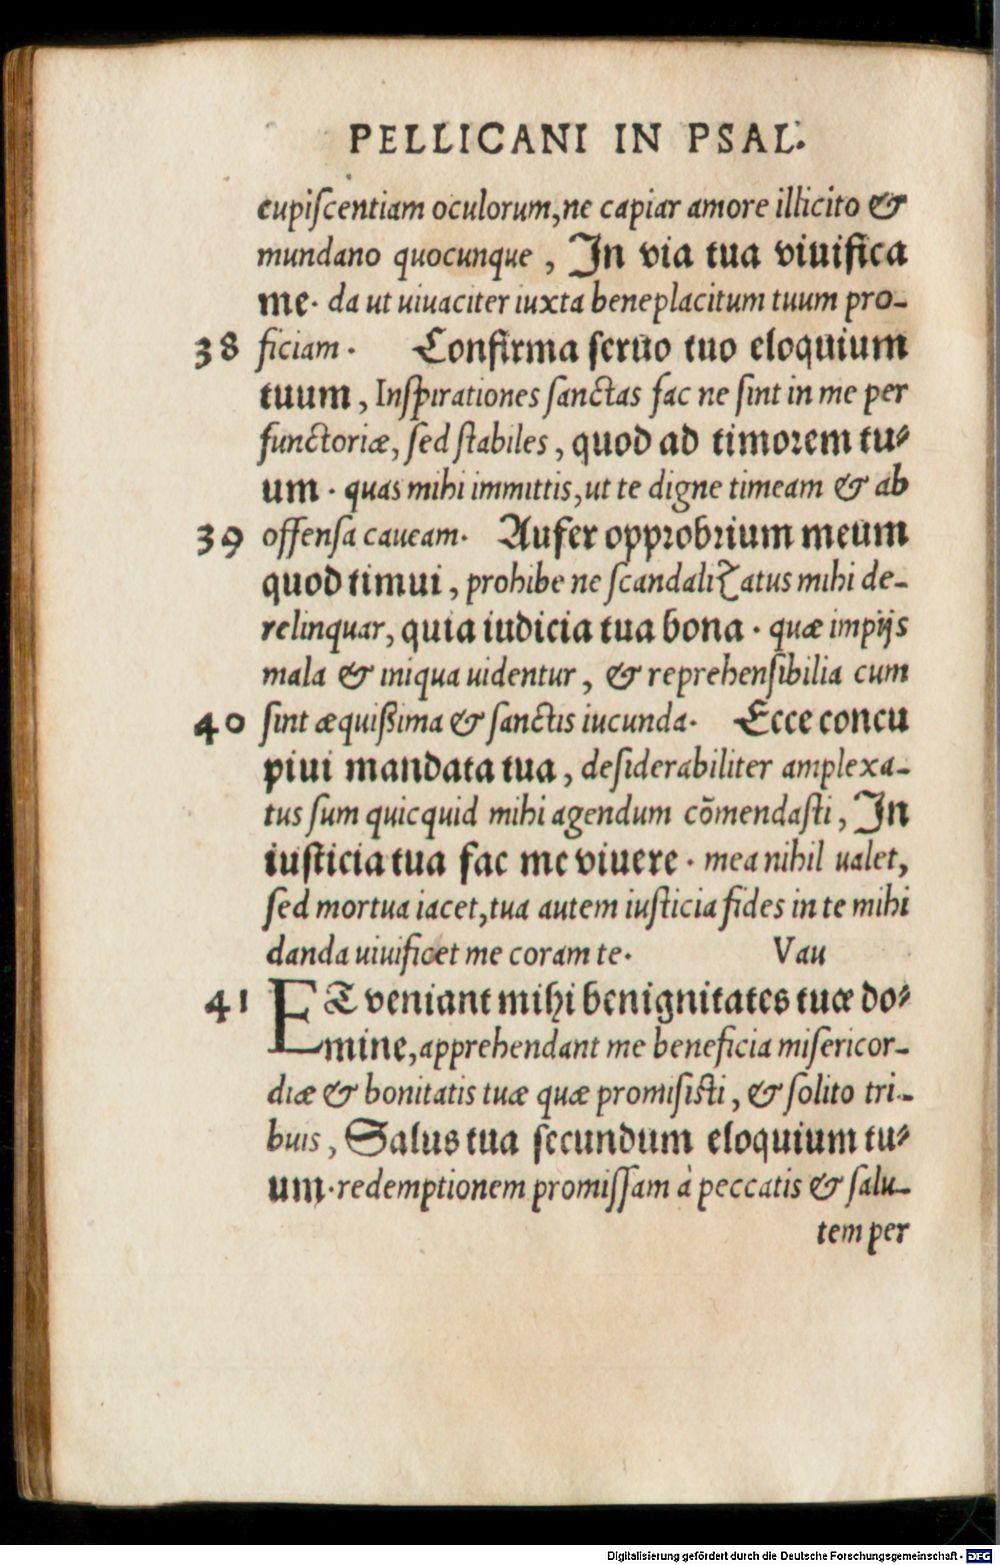 PELLICANI IN PSAL.
cupiſcentiam oculorum, ne capiar amore illicito &
mundano quocunque , In via tua viuifica
me. da ut uiuaciter iuxta beneplacitum tuum pro-
38 ficiam . Confirma ſeruo tuo eloquium
tuum , Inſpirationes ſanctas fac ne ſint in me per
functoriæ, ſed ſtabiles , quod ad timorem tu-
um . quas mihi immittis, ut te digne timeam & ab
39 offenſa caueam. Aufer opprobrium meum
quod timui , prohibe ne ſcandalizatus mihi de-
relinquar, quia iudicia tua bona . quæ impijs
mala & iniqua uidentur , & reprehenſibilia cum
40 ſint æquißima & ſanctis iucunda. Ecce concu
piui mandata tua , deſiderabiliter amplexa-
tus ſum quicquid mihi agendum cõmendaſti , In
iuſticia tua fac me viuere . mea nihil ualet,
ſed mortua iacet, tua autem iuſticia fides in te mihi
danda uiuificet me coram te. Vau
41 ET veniant mihi benignitates tuæ do-
mine, apprehendant me beneficia miſericor-
diæ & bonitatis tuæ quæ promiſiſti , & ſolito tri-
buis , Salus tua ſecundum eloquium tu-
um. redemptionem promiſſam à peccatis & ſalu-
tem per
Digitalisierung gefördert durch die Deutsche Forschungsgemeinschaft - DFG